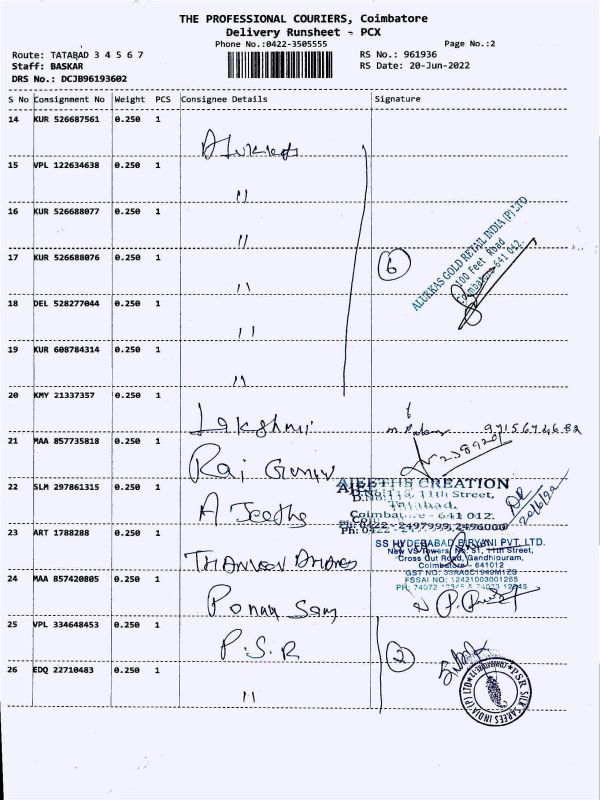 THE PROFESSIONAL COURIERS, Coimbatore
Delivery Runsheet - PCX
Phone No.:0422-3505555
Page No.:2
Route: TATABAD 3 4 5 6 7
RS No.: 961936
Staff: BASKAR
RS Date: 20-Jun-2022
DRS No.: DCJB96193602
S No Consignment No Weight PCS Consignee Details Signature
14 KUR 526687561 0.250 1
15 VPL 122634638 0.250 1 "
16 KUR 526688077 0.250 1 "
ALUKKAS GOLD RETAIL INDIA (P) LTD
100 Feet Road
Coimbatore-641 012.
17 KUR 526688076 0.250 1 " 6
18 DEL 528277044 0.250 1 "
19 KUR 608784314 0.250 1 "
20 KMY 21337357 0.250 1 Lakshmi
21 MAA 857735818 0.250 1 Raj
22 SLM 297861315 0.250 1 A Jeeths
AJEETHS CREATION
D.No:115, 11th Street,
Tatabad,
Coimbatore - 641 012.
Ph: 0422 - 2497999, 2496000
20/6/22
23 ART 1788288 0.250 1
SS HYDERABAD BIRYANI PVT. LTD.
New VS Towers, No: 51, 11th Street,
Cross Cut Road, Gandhipuram,
Coimbatore - 641012
FSSAI NO: 12421003001265
24 MAA 857420805 0.250 1 Ponnu Samy
25 VPL 334648453 0.250 1 P.S.R 2
26 EDQ 22710483 0.250 1 "
PSR SILK SAREES INDIA (P) LTD COIMBATORE-12